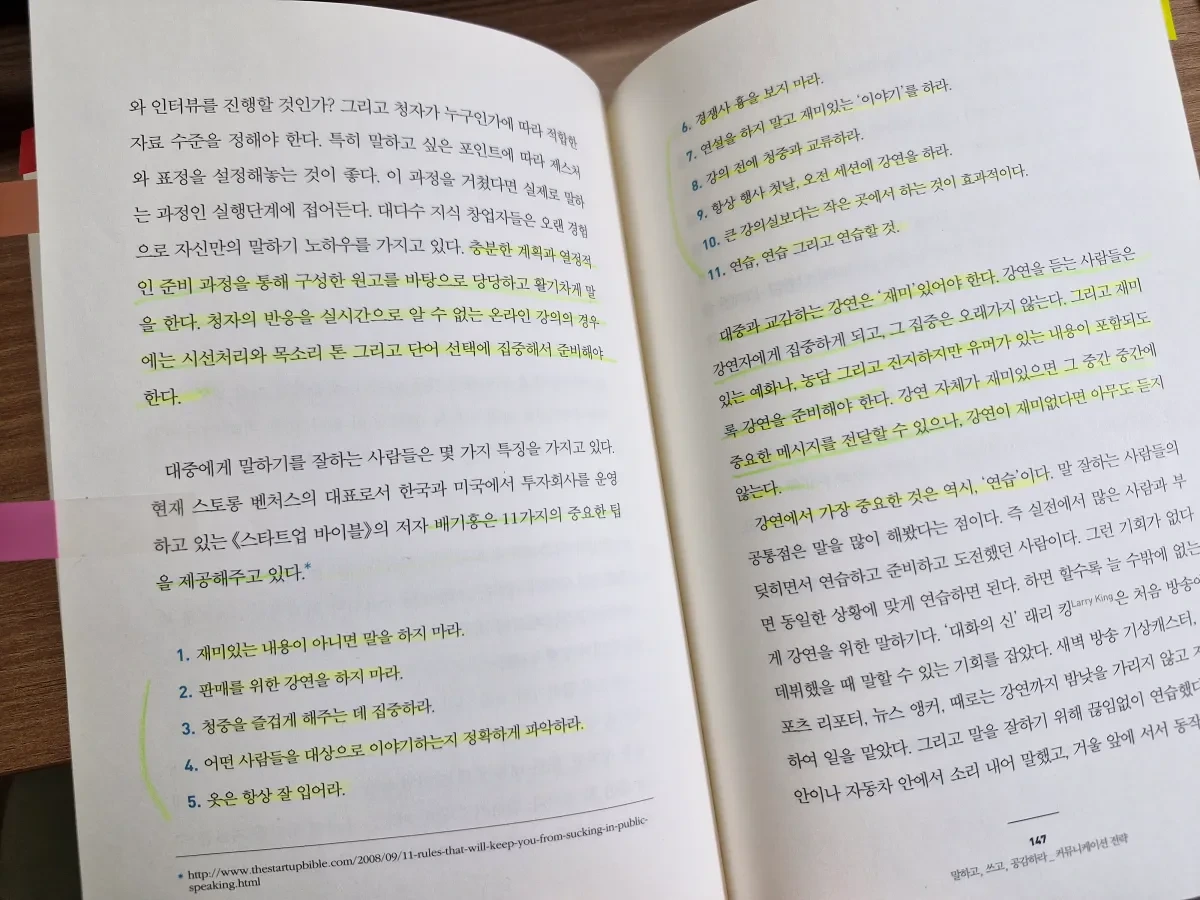 와 인터뷰를 진행할 것인가? 그리고 청자가 누구인가에 따라 적합한
자료 수준을 정해야 한다. 특히 말하고 싶은 포인트에 따라 제스처
와 표정을 설정해놓는 것이 좋다. 이 과정을 거쳤다면 실제로 말하
는 과정인 실행단계에 접어든다. 대다수 지식 창업자들은 오랜 경험
으로 자신만의 말하기 노하우를 가지고 있다. 충분한 계획과 열정적
인 준비 과정을 통해 구성한 원고를 바탕으로 당당하고 활기차게 말
을 한다. 청자의 반응을 실시간으로 알 수 없는 온라인 강의의 경우
에는 시선처리와 목소리 톤 그리고 단어 선택에 집중해서 준비해야
한다.
대중에게 말하기를 잘하는 사람들은 몇 가지 특징을 가지고 있다.
현재 스토롱 벤처스의 대표로서 한국과 미국에서 투자회사를 운영
하고 있는 《스타트업 바이블》의 저자 배기홍은 11가지의 중요한 팁
을 제공해주고 있다.*
1. 재미있는 내용이 아니면 말을 하지 마라.
2. 판매를 위한 강연을 하지 마라.
3. 청중을 즐겁게 해주는 데 집중하라.
4. 어떤 사람들을 대상으로 이야기하는지 정확하게 파악하라.
5. 옷은 항상 잘 입어라.
* http://www.thestartupbible.com/2008/09/11-rules-that-will-keep-you-from-sucking-in-public-
speaking.html
6. 경쟁사 흉을 보지 마라.
7. 연설을 하지 말고 재미있는 '이야기'를 하라.
8. 강의 전에 청중과 교류하라.
9. 항상 행사 첫날, 오전 세션에 강연을 하라.
10. 큰 강의실보다는 작은 곳에서 하는 것이 효과적이다.
11. 연습, 연습 그리고 연습할 것.
대중과 교감하는 강연은 '재미'있어야 한다. 강연을 듣는 사람들은
강연자에게 집중하게 되고, 그 집중은 오래가지 않는다. 그리고 재미
있는 예화나, 농담 그리고 진지하지만 유머가 있는 내용이 포함되도
록 강연을 준비해야 한다. 강연 자체가 재미있으면 그 중간 중간에
중요한 메시지를 전달할 수 있으나, 강연이 재미없다면 아무도 듣지
않는다.
강연에서 가장 중요한 것은 역시, '연습'이다. 말 잘하는 사람들의
공통점은 말을 많이 해봤다는 점이다. 즉 실전에서 많은 사람과 부
딪히면서 연습하고 준비하고 도전했던 사람이다. 그런 기회가 없다
면 동일한 상황에 맞게 연습하면 된다. 하면 할수록 늘 수밖에 없는
게 강연을 위한 말하기다. '대화의 신' 래리 킹Larry King은 처음 방송에
데뷔했을 때 말할 수 있는 기회를 잡았다. 새벽 방송 기상캐스터,
포츠 리포터, 뉴스 앵커, 때로는 강연까지 밤낮을 가리지 않고
하여 일을 맡았다. 그리고 말을 잘하기 위해 끊임없이 연습했다
안이나 자동차 안에서 소리 내어 말했고, 거울 앞에 서서 동작
147
말하고, 쓰고, 공감하라_커뮤니케이션 전략